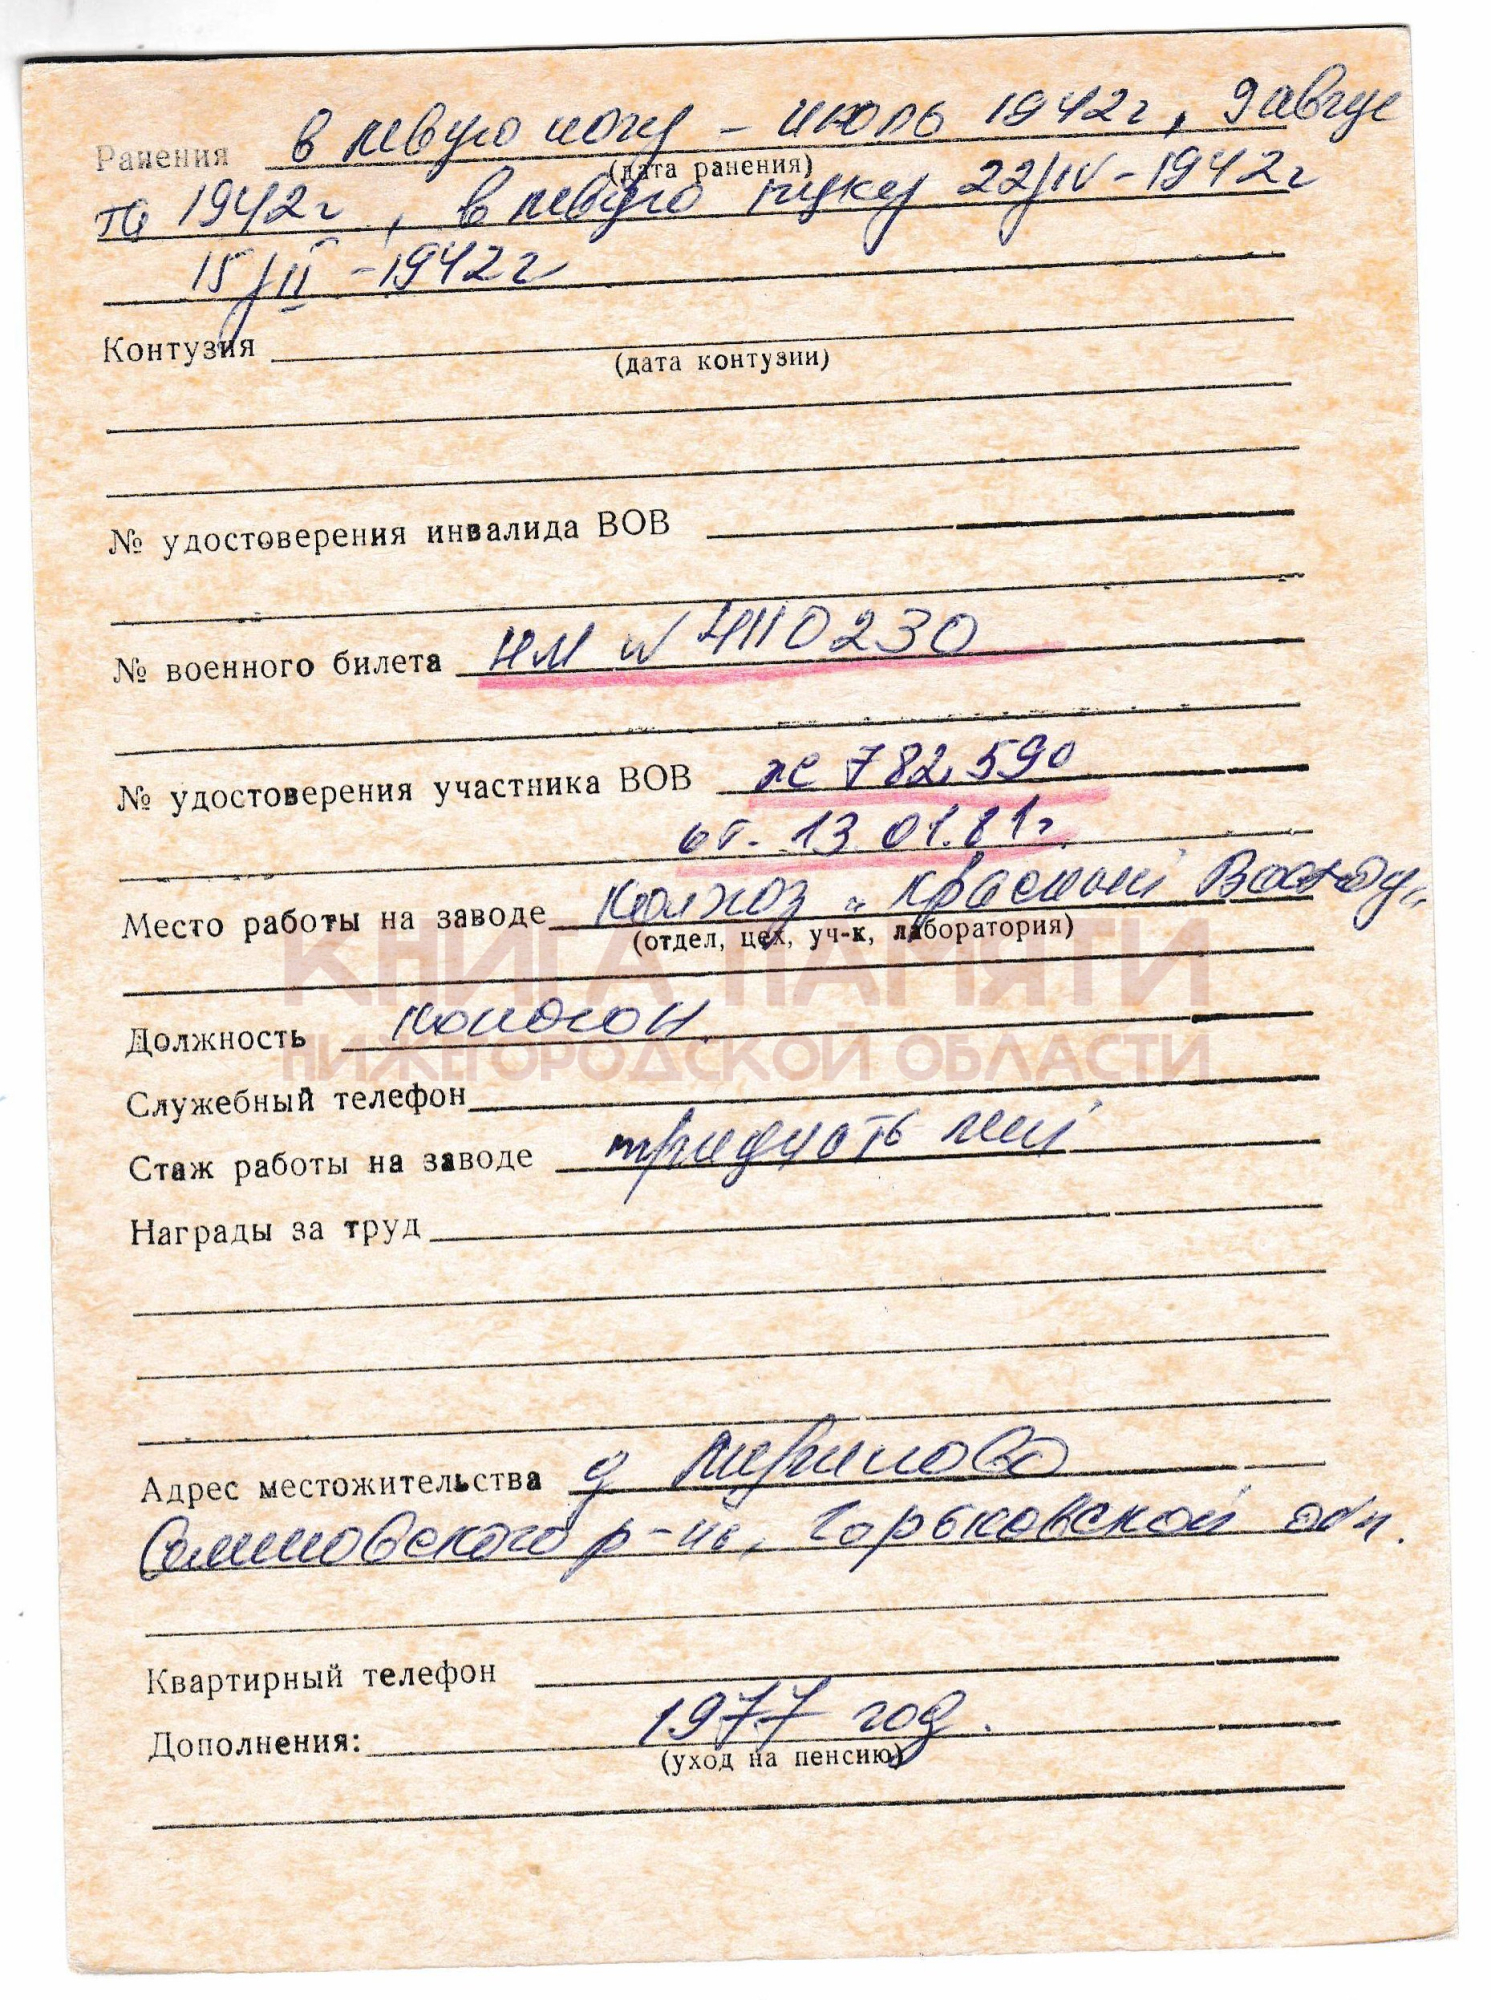 Ранения в левую ногу - июль 1942г, 9 авгус
(дата ранения)
та 1942г, в левую руку 22/IV-1942г
15/II-1942г
Контузия
(дата контузии)
№ удостоверения инвалида ВОВ
№ военного билета НМ № 4110230
№ удостоверения участника ВОВ 782590
от. 13.01.81г
Место работы на заводе колхоз "Красный Восход"
(отдел, цех, уч-к, лаборатория)
КНИГА ПАМЯТИ
Должность
НИЖЕГОРОДСКОЙ ОБЛАСТИ
Служебный телефон
Стаж работы на заводе тридцать лет
Награды за труд
Адрес местожительства д
р-на, Горьковской обл.
Квартирный телефон
Дополнения: 1977 год.
(уход на пенсию)